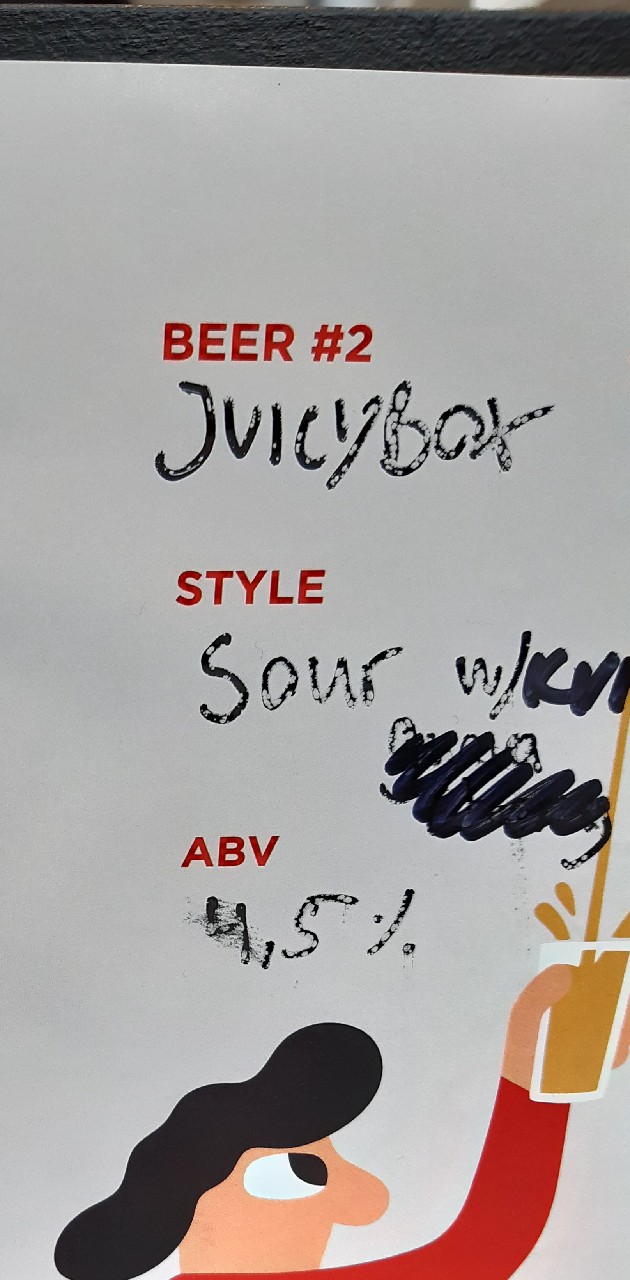 BEER #2
JUICYBOX
STYLE
Sour w/
ABV
4,5%